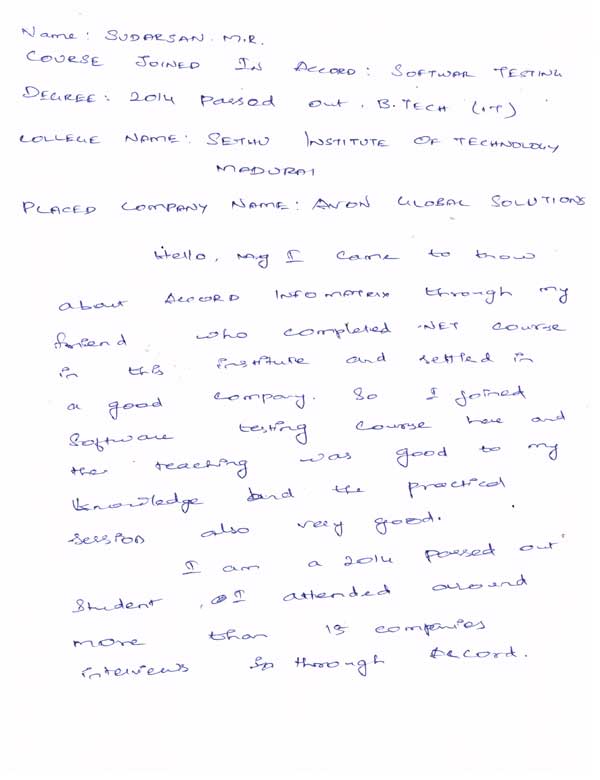 Name: SUDARSAN. M.R.
COURSE JOINED IN ACCORD: SOFTWAR TESTING
DEGREE: 2014 Passed out. B.TECH (I.T)
COLLEGE NAME: SETHU INSTITUTE OF TECHNOLOGY
MADURAI
PLACED COMPANY NAME: AVON GLOBAL SOLUTIONS
Hello, my I came to know
about ACCORD INFOMATRIX through my
friend who completed .NET course
in this institure and settled in
a good company. So I joined
Software testing course here and
the teaching was good to my
knowledge and the practical
session also very good.
I am a 2014 passed out
Student, I attended around
more than 15 companies
interviews through Accord.